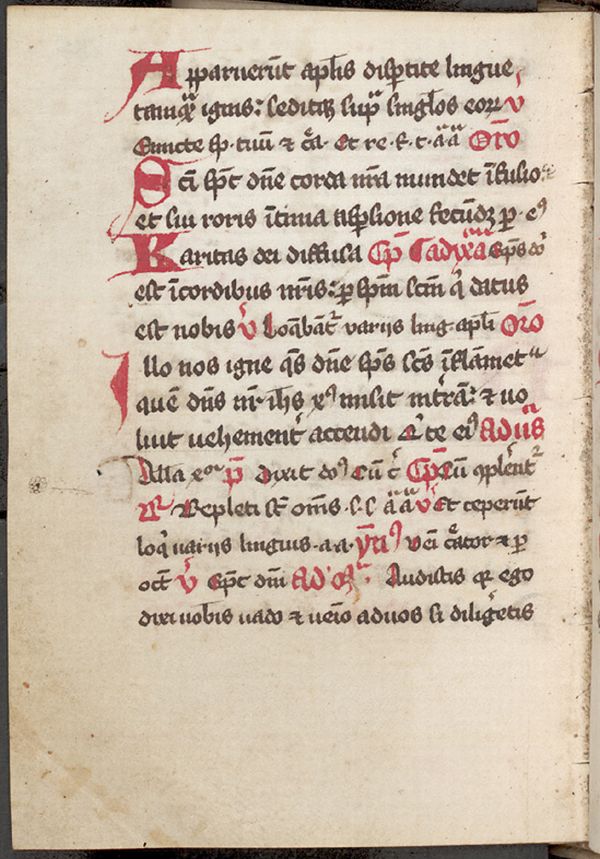 Apparuerūt aplīs disptite lingue
tamqͣ ignis: seditqꝫ supͣ singlos eorꝝ v̄
Emitte sp̄. tuū ⁊ cͣa. Et re. f. t. aͣ aͣ Oro
Scī spc̄ dn̄e corda nr̄a mundet īfusio:
et sui roris ītima aspsione fecūdꝫ p. eꝰ
Karitas dei diffusa Cap ad sp̄s
est īcordibus nr̄is: p sp̄m scm̄ qͥ datus
est nobis v̄ loq̄bāt varijs ling apl̄i Oro
Illo nos igne qs̄ dn̄e sp̄s scs̄ īflāmet
quē dn̄s nr̄ ih̄s xꝰ misit ītrā: ⁊ uo
luit uehement accendi qͥ te eiꝰ Ad ūs
Alla p̄ Dixit doꝰ Cū c̄ Cū ꝯplent
R Repleti st̄ om̄s. s. s. aͣ aͣ v̄ Et ceperūt
loqͥ uarijs linguis. a. a. yn̄ Veī cͣator ⁊ p
oct̄ v̄ Spc̄ dn̄i Ad Audistis qꝛ ego
dixi uobis uado ⁊ uenio aduos si diligetis